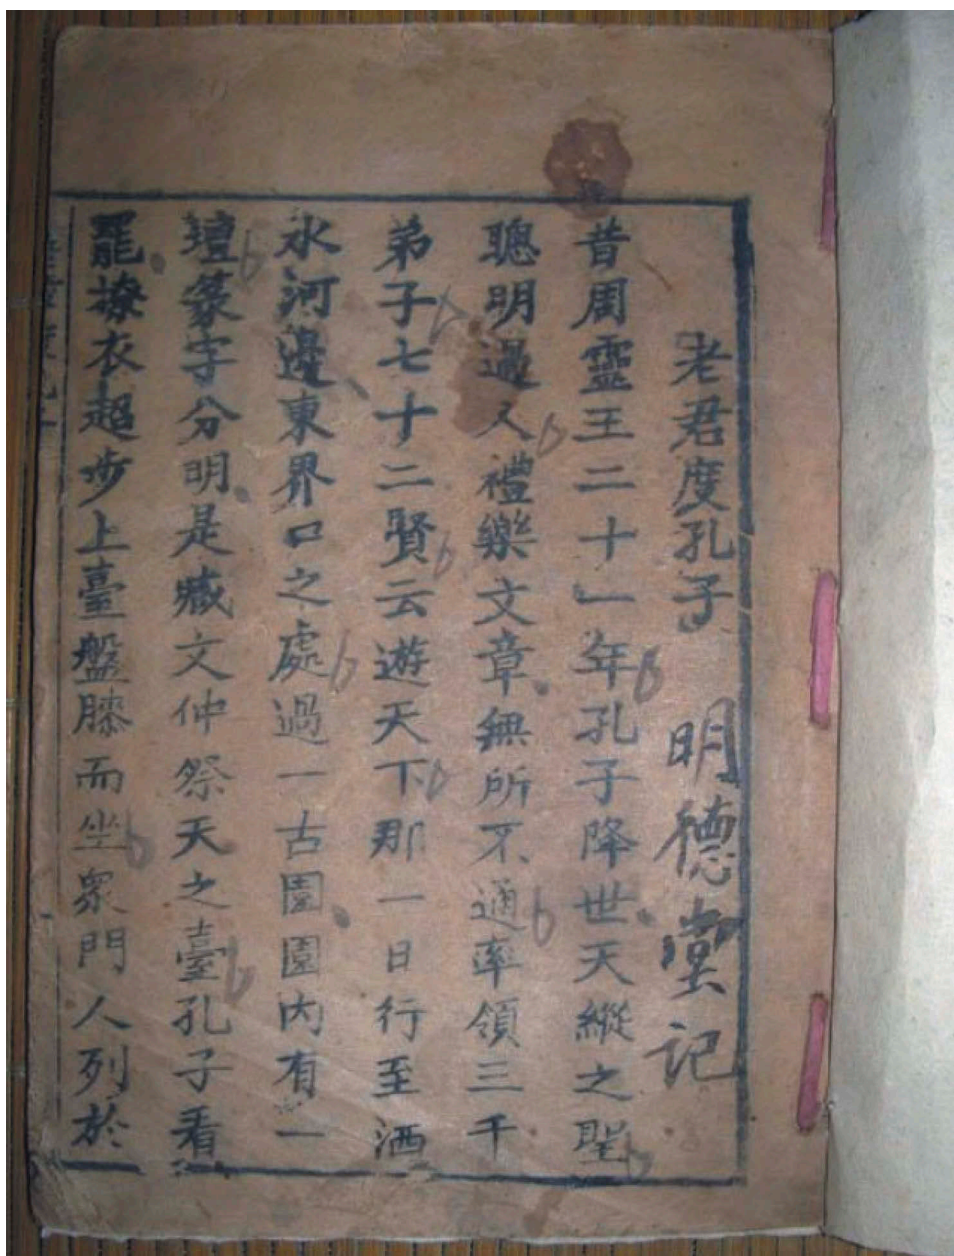 老君度孔子 明德堂记
昔周靈王二十一年孔子降世天縱之聖
聰明過人禮樂文章無所不通率領三千
弟子七十二賢云遊天下那一日行至洒
水河邊東界口之處過一古園園内有一
壇篆字分明是臧文仲祭天之臺孔子看
罷撩衣超步上臺盤膝而坐衆門人列於